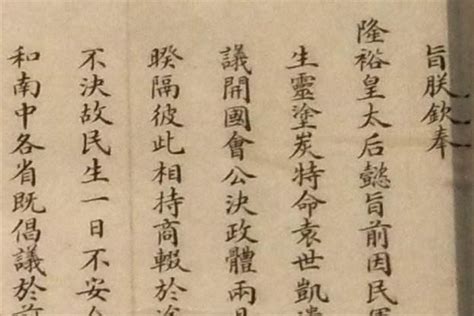 旨朕欽奉
隆裕皇太后懿旨前因民軍
生靈塗炭特命袁世凱遣
議開國會公決政體兩月
睽隔彼此相持商輟於途
不決故民生一日不安今
和南中各省既倡議於前